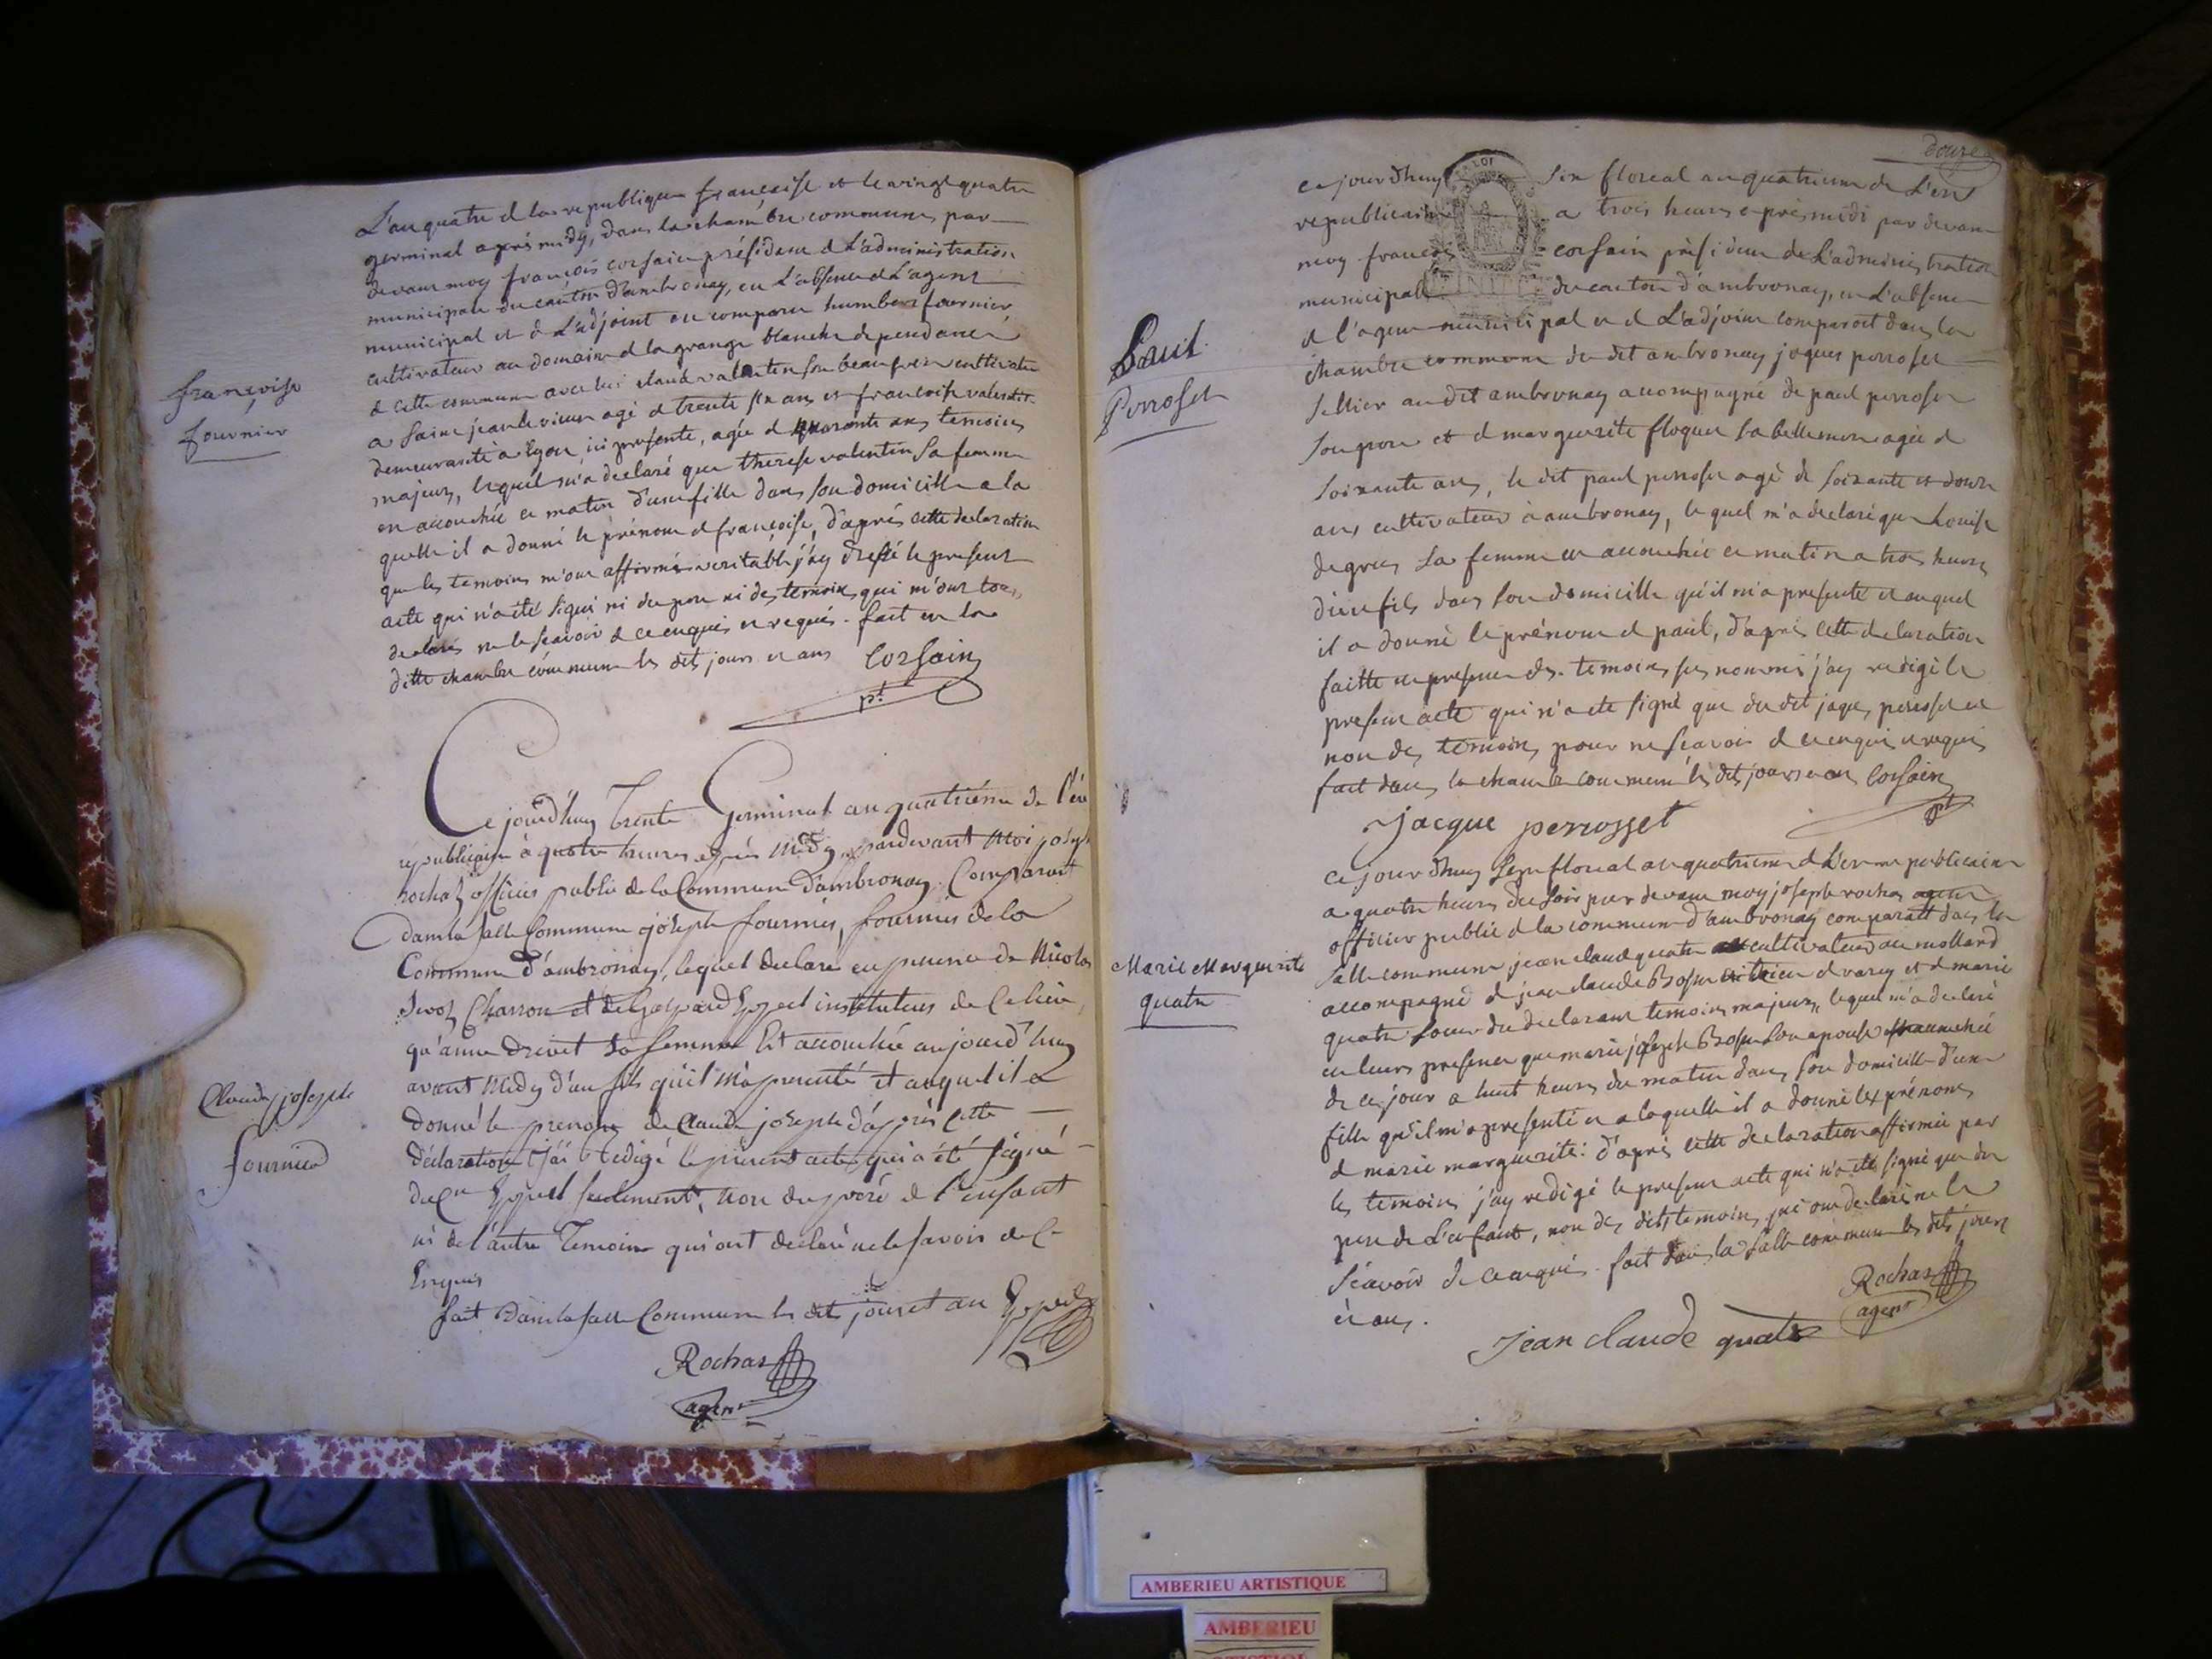 L'an quatre d la republique francaise et le vingt quatre
germinal après midy, dans la chambre commune, par
devant moy francois corsain président d L'administration
municipale du canton d'ambronay, en L'absence d L'agent
municipal et d L'adjoint est comparu humbert fournier
cultivateur au domaine d la grange blanche dependance
d cette commune avec lui claude valentin son beau frere cultivateur
a saint jean le vieux agé d trente six ans et francoise valentin
demeurante à lyon ici presente, agée d quarante ans temoins
majeurs, lequel m'a declaré que therese valentin sa femme
en accouchée ce matin d'une fille dans son domicille a la
quelle il a donné le prénom d françoise, d'aprés cette declaration
que les temoins m'ont affirmés veritable j'ay dressé le present
acte qui n'a été signé ni du pere ni des temoins, qui m'ont tous
declarés ne le scavoir d ce enquis et requis. fait en la
ditte chambre commune les dits jours et ans corsain
pt
françoise
fournier
Ce jourd'huy Trente Germinal an quatriéme de l'ére
republicaine à quatre heures après Midy, pardevant Moi joseph
Rochas officier public de la Commune d'ambronay Comparait
dans la salle Commune joseph fournier, fournier de la
Commune d'ambronay, lequel declare en presence de Nicolas
Charron et de gaspard instituteur de Ce lieu,
qu'anne drivet sa femme Est accouchée aujourd'huy
avant Midy d'un fils qu'il m'a presenté et auquel il a
donné le prenom de Claude joseph d'après cette
déclaration j'ai Redigé le présent acte qui a été signé
du Cn seulement, non du peré de l'enfant
ni de l'autre Temoin qui ont declaré ne le savoir de Ce
Enquis
fait Dans la salle Commune les dits jour et an
Rochas
agent
Claude joseph
fournier
douze
LOI
ce jourdhuy six floreal an quatrieme de L'ere
republicaine a trois heures après midi par devant
moy francois corsain président de L'administration
municipale du canton d'ambronay, en L'absence
d l'agent municipal et d L'adjoint comparoit dans la
chambre commune du dit ambronay jaques perrosset
sellier au dit ambronay accompagné de paul perrosset
son pere et d marguerite floquet sa belle mere agée d
soixante ans, le dit paul perrosset agé de soixante et douze
ans cultivateur à ambronay, le quel m'a declaré que Louise
degres sa femme en accouchée ce matin a trois heures
d'un fils dans son domicille qu'il m'a presenté et auquel
il a donné le prénom d paul, d'aprés cette declaration
faitte en presence des temoins sus nommés j'ay redigé le
present acte qui n'a eté signé que du dit jaques perrosset et
non des temoins pour ne scavoir d ce enquis et requis
fait dans la chambre commune les dits jours et an corsain
pt
jacque perrosset
Paul
Perrosset
ce jour d'huy sept floreal an quatrieme d L'ere republicaine
a quatre heures du soir par devant moy joseph rochas agent
officier public d la commune d'ambronay comparait dans la
salle commune jean claude quatre cultivateur au mollard
accompagné d jean claude Bossu d varey et d marie
quatre soeur du declarant temoins majeurs, lequel m'a declaré
en leurs presence que marie joseph Bossu son epouse est accouchée
de ce jour a huit heures du matin dans son domicille d'une
fille qu'il m'a presenté et a laquelle il a donné les prénoms
d marie marguerite: d'aprés cette declaration affirmée par
les temoins j'ay redigé le present acte qui n'a été signé que du
pere de L'enfant, non des dits temoins qui ont declaré ne le
scavoir de ce enquis. fait dans la salle commune les dits jours
et ans.
Rochas
agent
Jean claude quatre
Marie Marguerite
quatre
AMBERIEU ARTISTIQUE
AMBERIEU
ARTISTIQUE